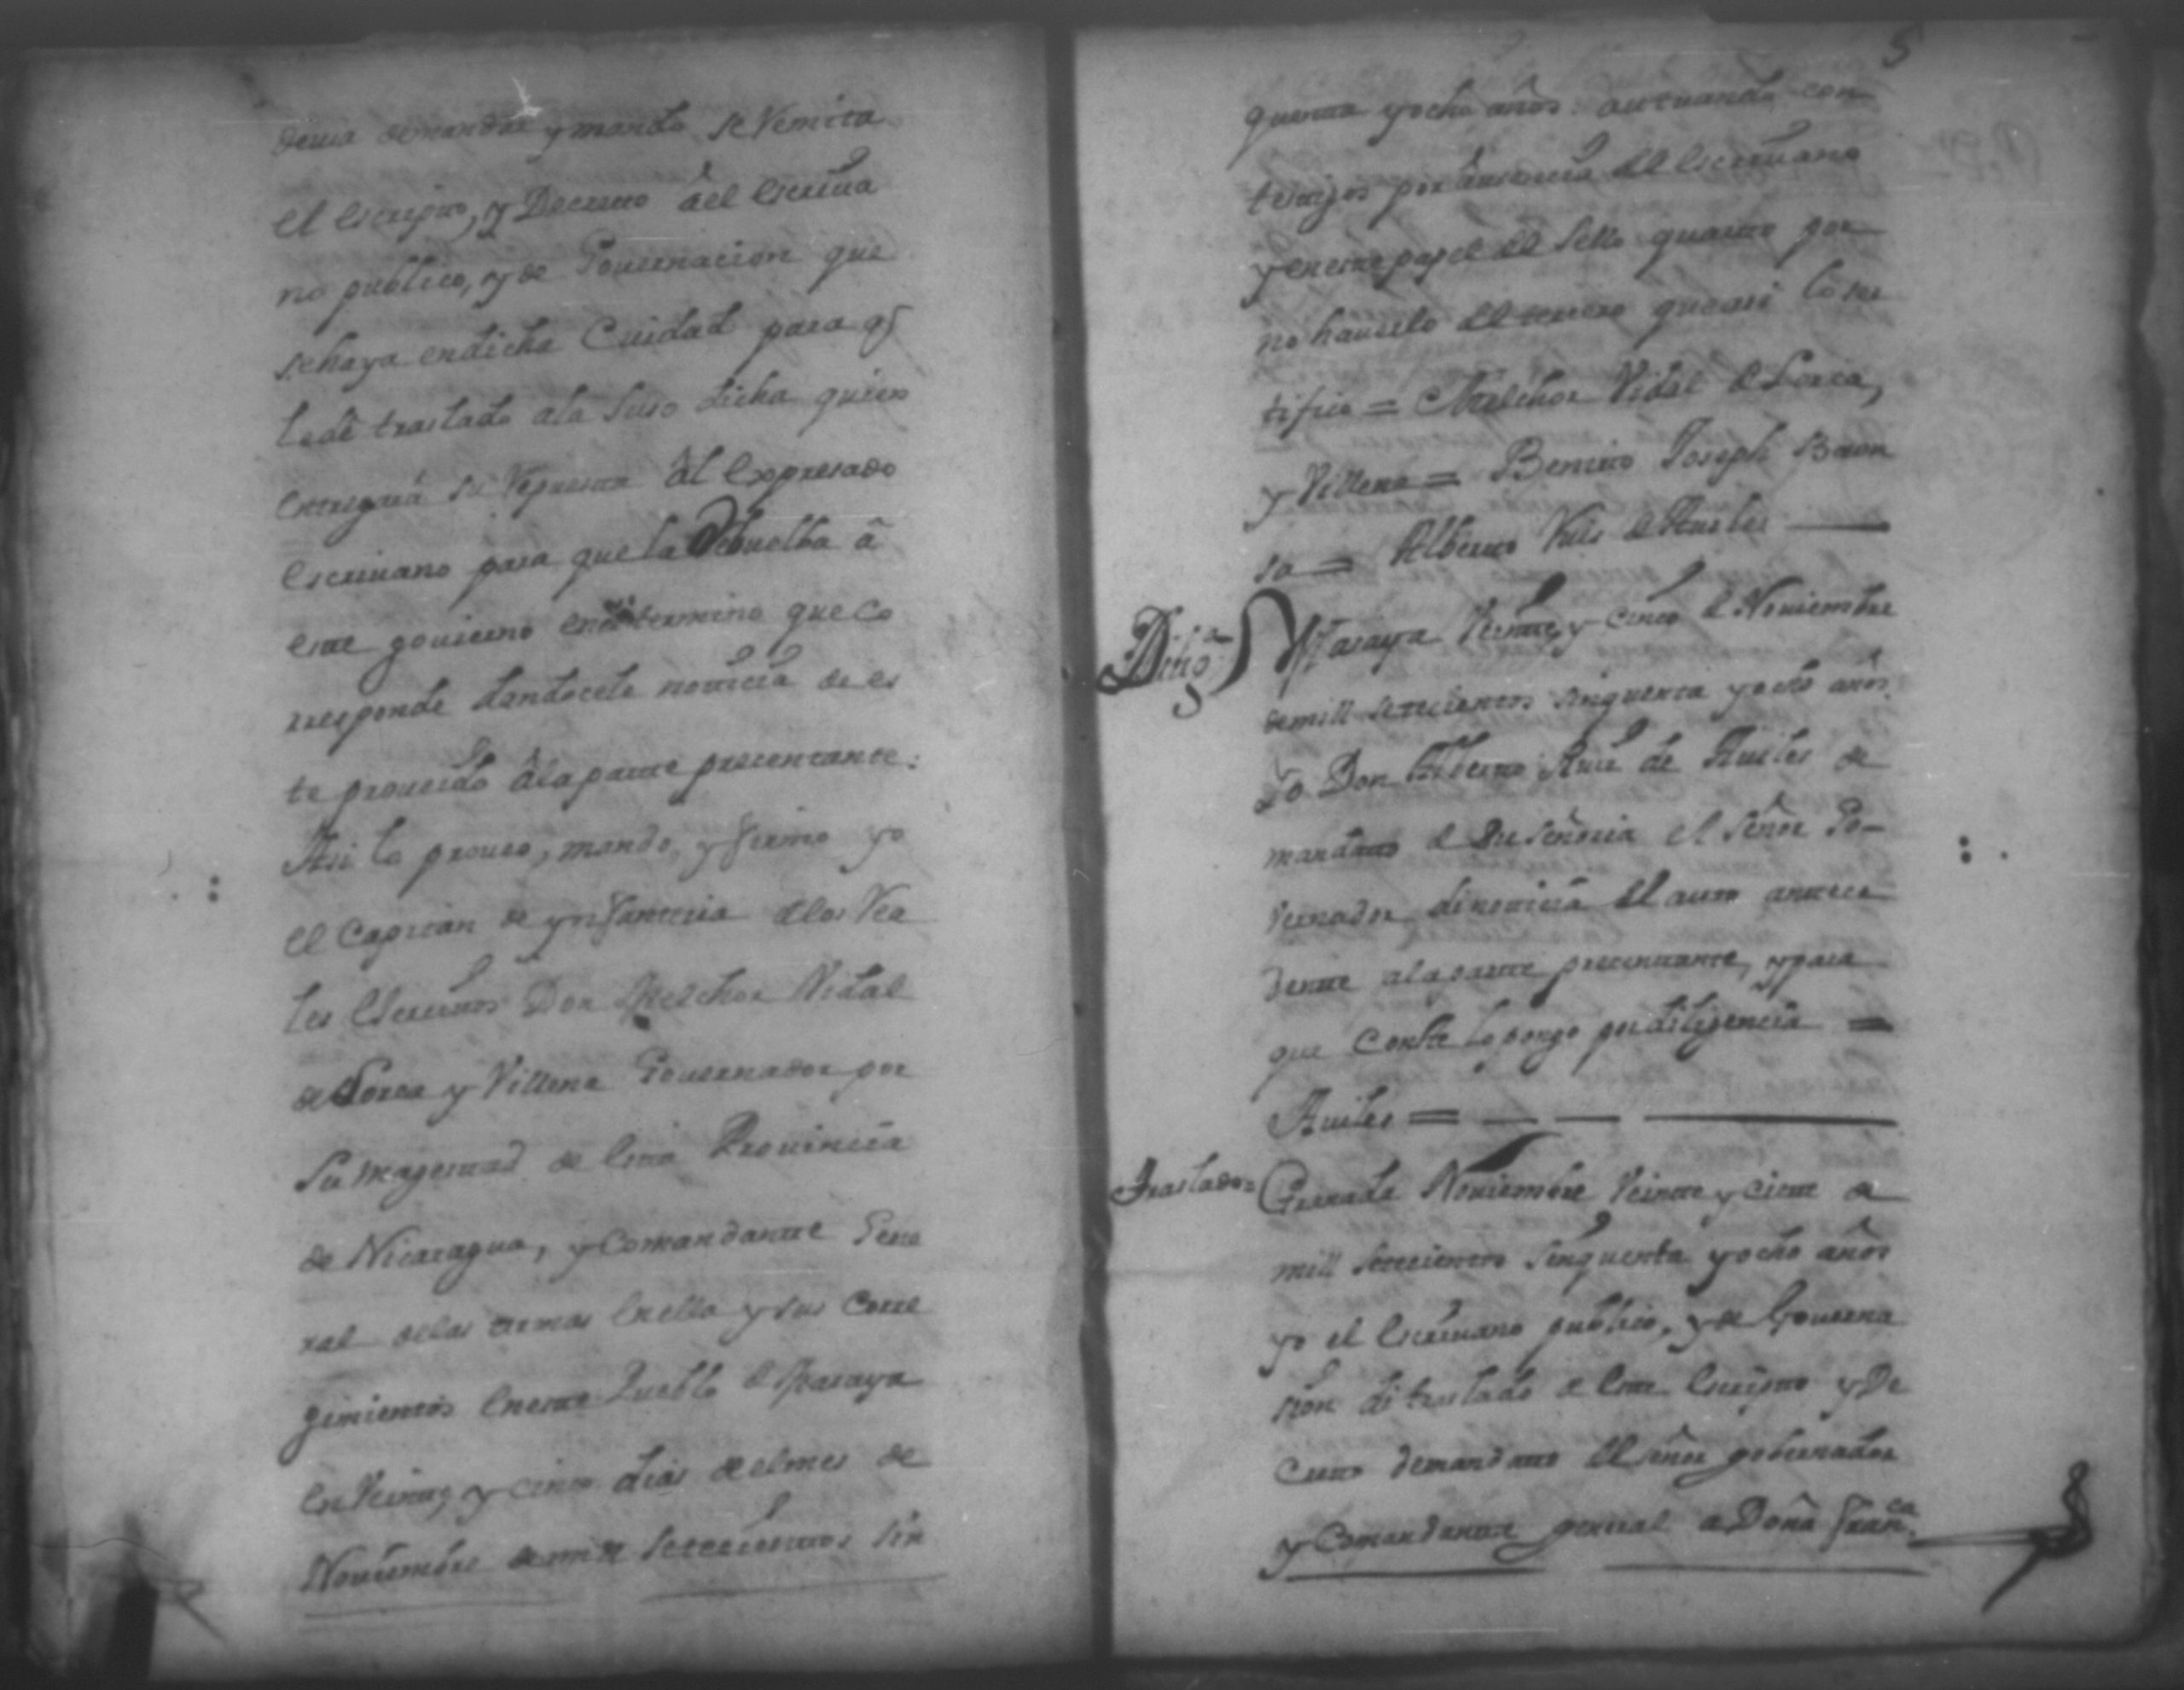 deuia demandar y mando se remita
el escripto, y Decreto àel escriua
no publico, y de Gouernacion que
sehaya endicha Cuidad para q̃
le dê traslado ala suso dicha quien
entregará su repuesta âl expresado
escriuano para que la debuelba â
este gouierno enel termino que co
rresponde dandocele noticia de es
te proueido âlaparte precentante.
Asi lo proueo, mando, y firmo yo
el Capitan de ynfanteria delos rea
les Exercitos Don Melchor Vidal
de Lorca y Villena Gouernador por
Su magestad de esta Prouincia
de Nicaragua, y Comandante Gene
ral delas armas enella y sus Corre
gimientos eneste Pueblo de Masaya
en Veinte, y cinco dias delmes de
Nouiembre de mill setecientos sin
5
quenta yocho años: actuando con
testigos por ausencia del escriuano
y eneste papel del sello quarto por
no hauerlo del tercero queasi lo ser
tifico = Melchor Vidal de Lorca,
y Villena = Benito Joseph Baon
sa = Alberto Ruis de Auiles
Dilig.ª Masaya Veinte, y cinco de Nouiembre
demill setecientos sinquenta yocho años.
Yo Don Alberto Ruiz de Auiles de
mandato de Su Señoria el Señor Go-
vernador dinoticia del auto antece
dente alaparte precentante, ypara
que Conste lo pongo por diligencia =
Auiles =
Traslado= Granada Nouiembre Veinte y ciete de
mill setecientos sinquenta yocho años
yo el escriuano publico, y de Gouerna
sion di traslado de este escripto y De
creto demandato del señor gobernador
y Comandante general a Doña Fran.ca